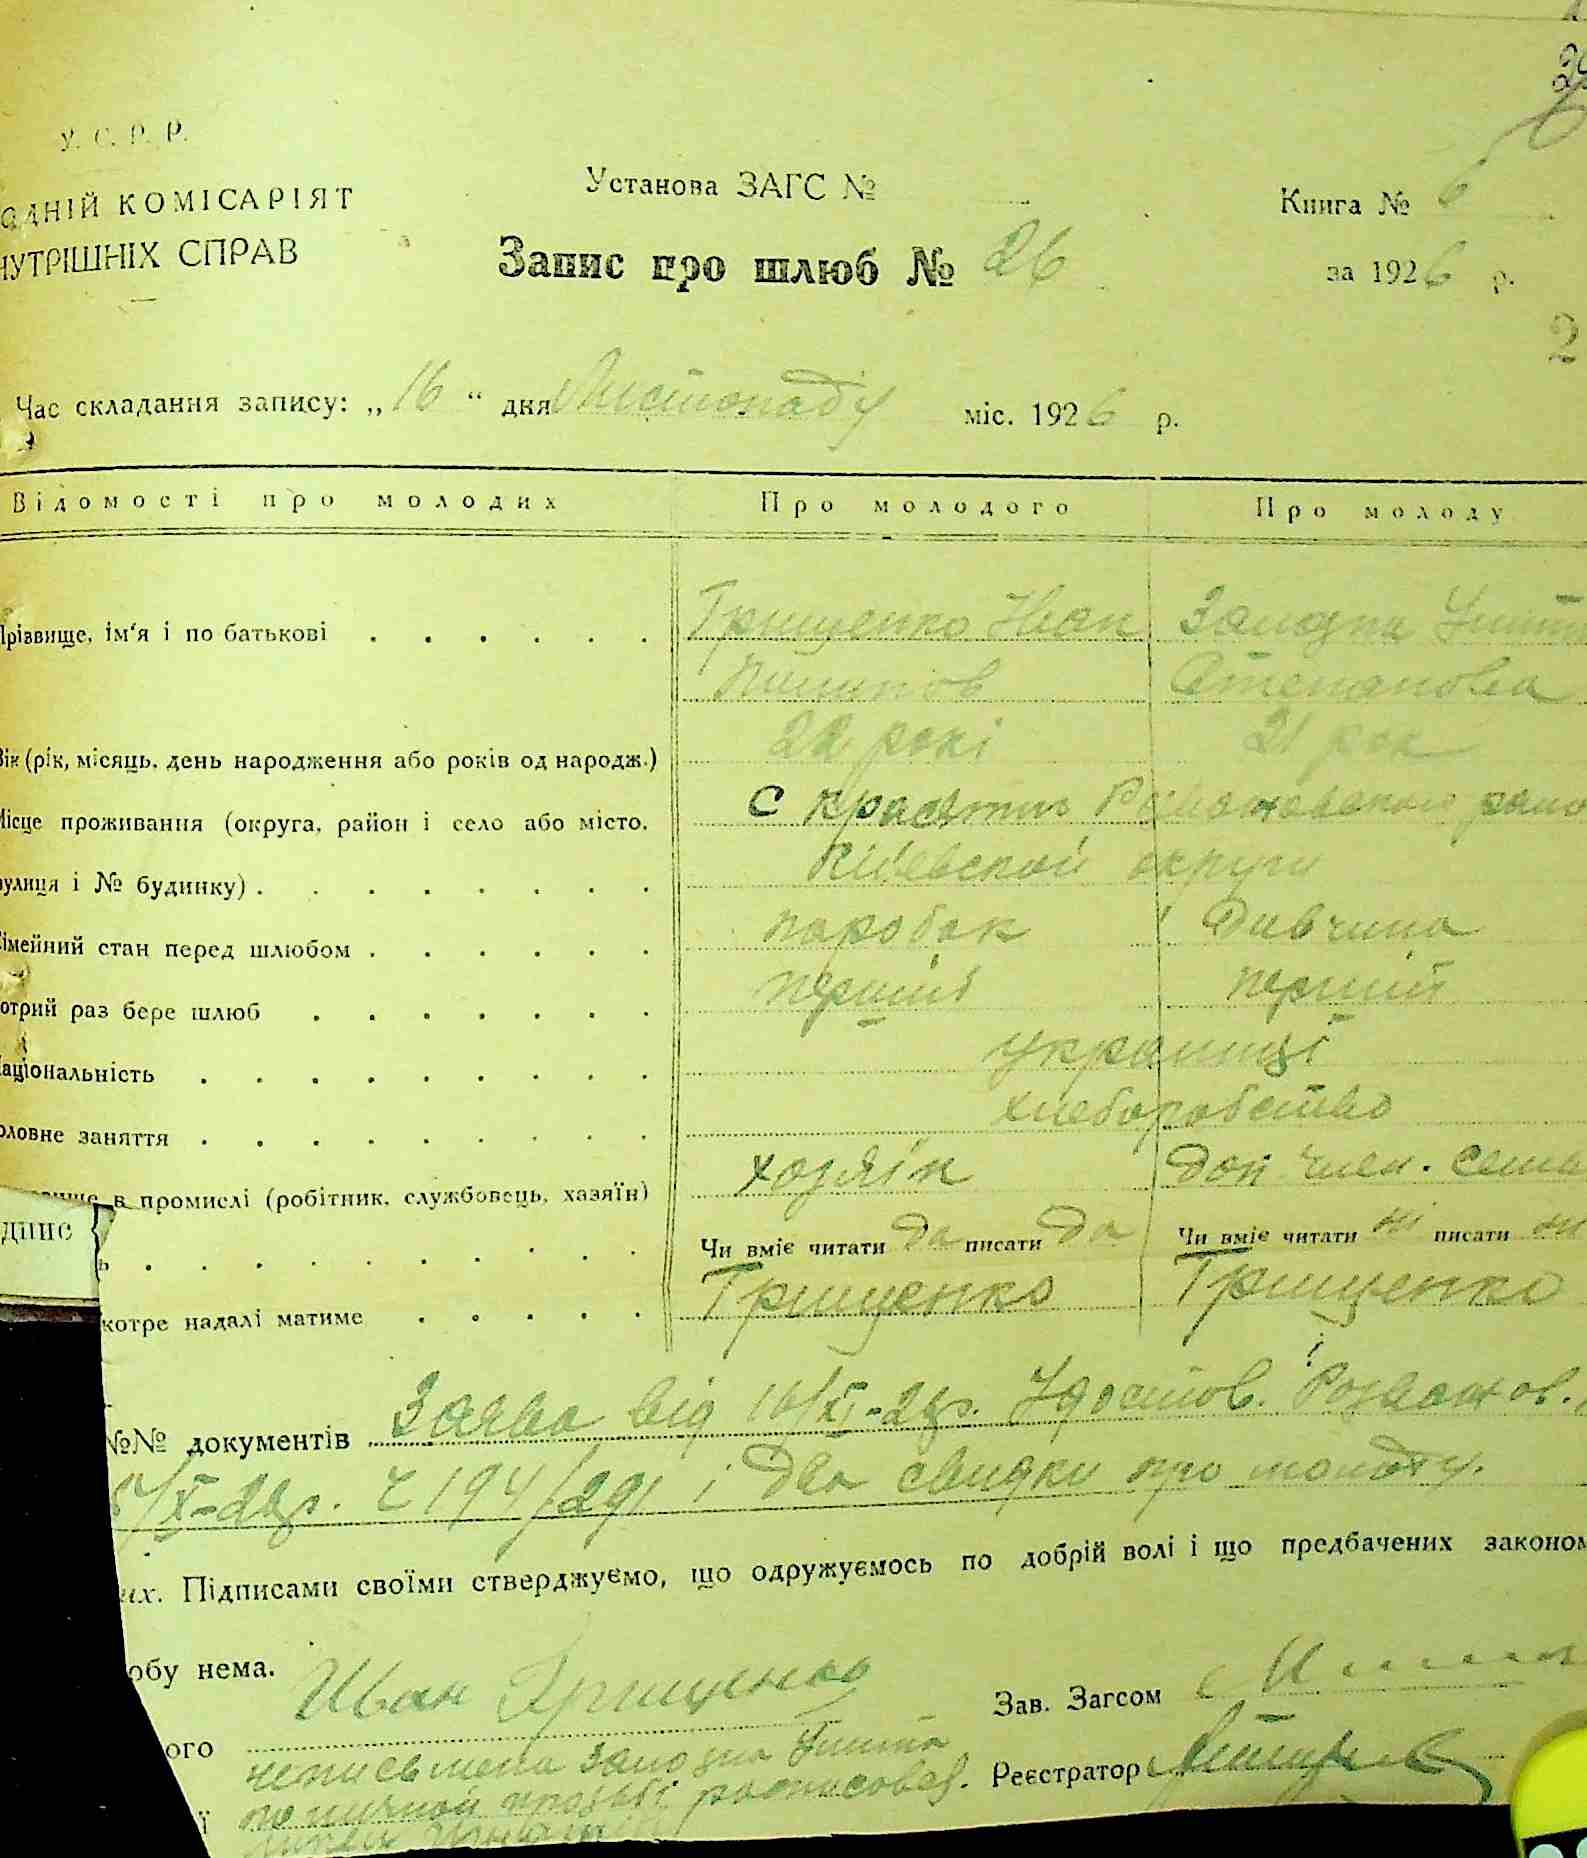 У. С. Р. Р.
ОДНІЙ КОМІСАРІЯТ
НУТРІШНІХ СПРАВ
Установа ЗАГС №
Книга № 6
Запис про шлюб № 26
за 1926 р.
2
Час складання запису: „16“ дня Листопаду міс. 1926 р.
Відомості про молодих Про молодого Про молоду
Прізвище, ім'я і по батькові Грищенко Иван
Пилипов Степанова
Вік (рік, місяць, день народження або років од народж.) 22 рокі 21 рок
Місце проживання (округа, район і село або місто, с
вулиця і № будинку) Київской округи
сімейний стан перед шлюбом паробок Дивчина
отрий раз бере шлюб перший перший
Національність украинці
оловне заняття хлеборобство
в промислі (робітник, службовець, хазяїн) хозяїн доп член. семи
дпис
ь Чи вміє читати да писати да Чи вміє читати ні писати ни
котре надалі матиме Грищенко Грищенко
№№ документів Заява від 16/XI-26р. Удостов. Розважов.
/X-26р. Ч 194/291 і два свидки про
их. Підписами своїми стверджуємо, що одружуємось по добрій волі і що предбачених законом
обу нема.
ого Иван Грищенко
Зав. Загсом
неписьмена Улита
Реєстратор
ї